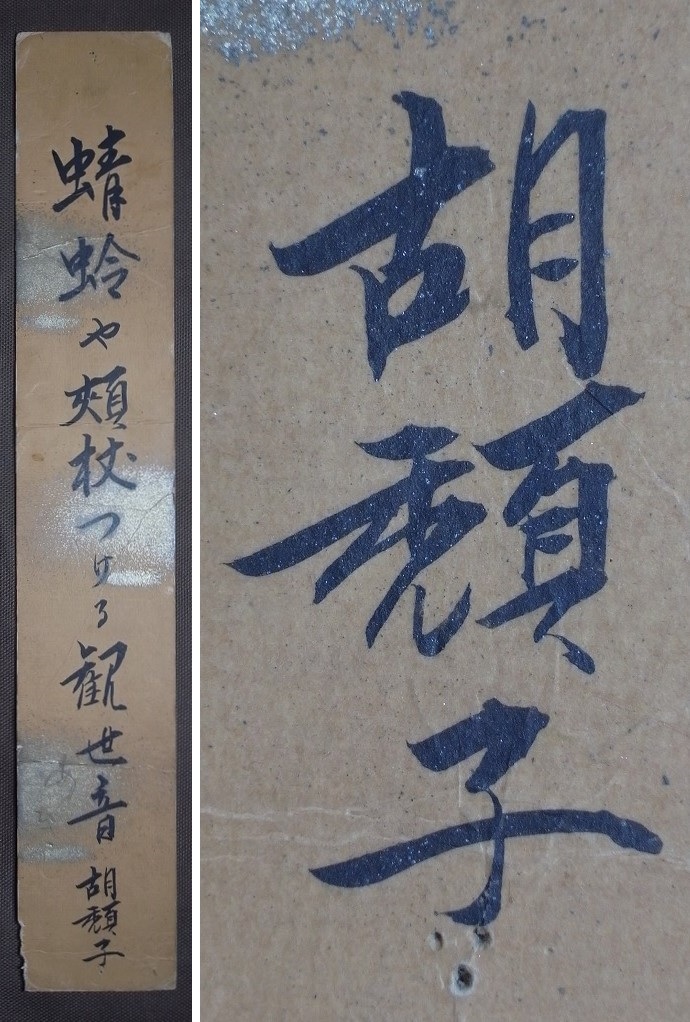 蜻蛉や頬杖つける観世音
胡頽子
胡頽子